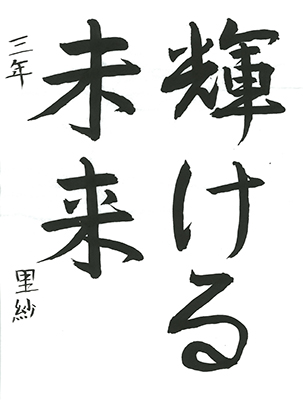 輝ける
未来
三年 里紗